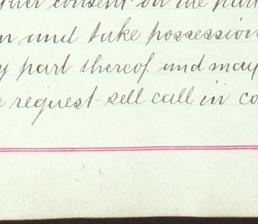 consent on the part
and take possession
part thereof and may
request sell call in co